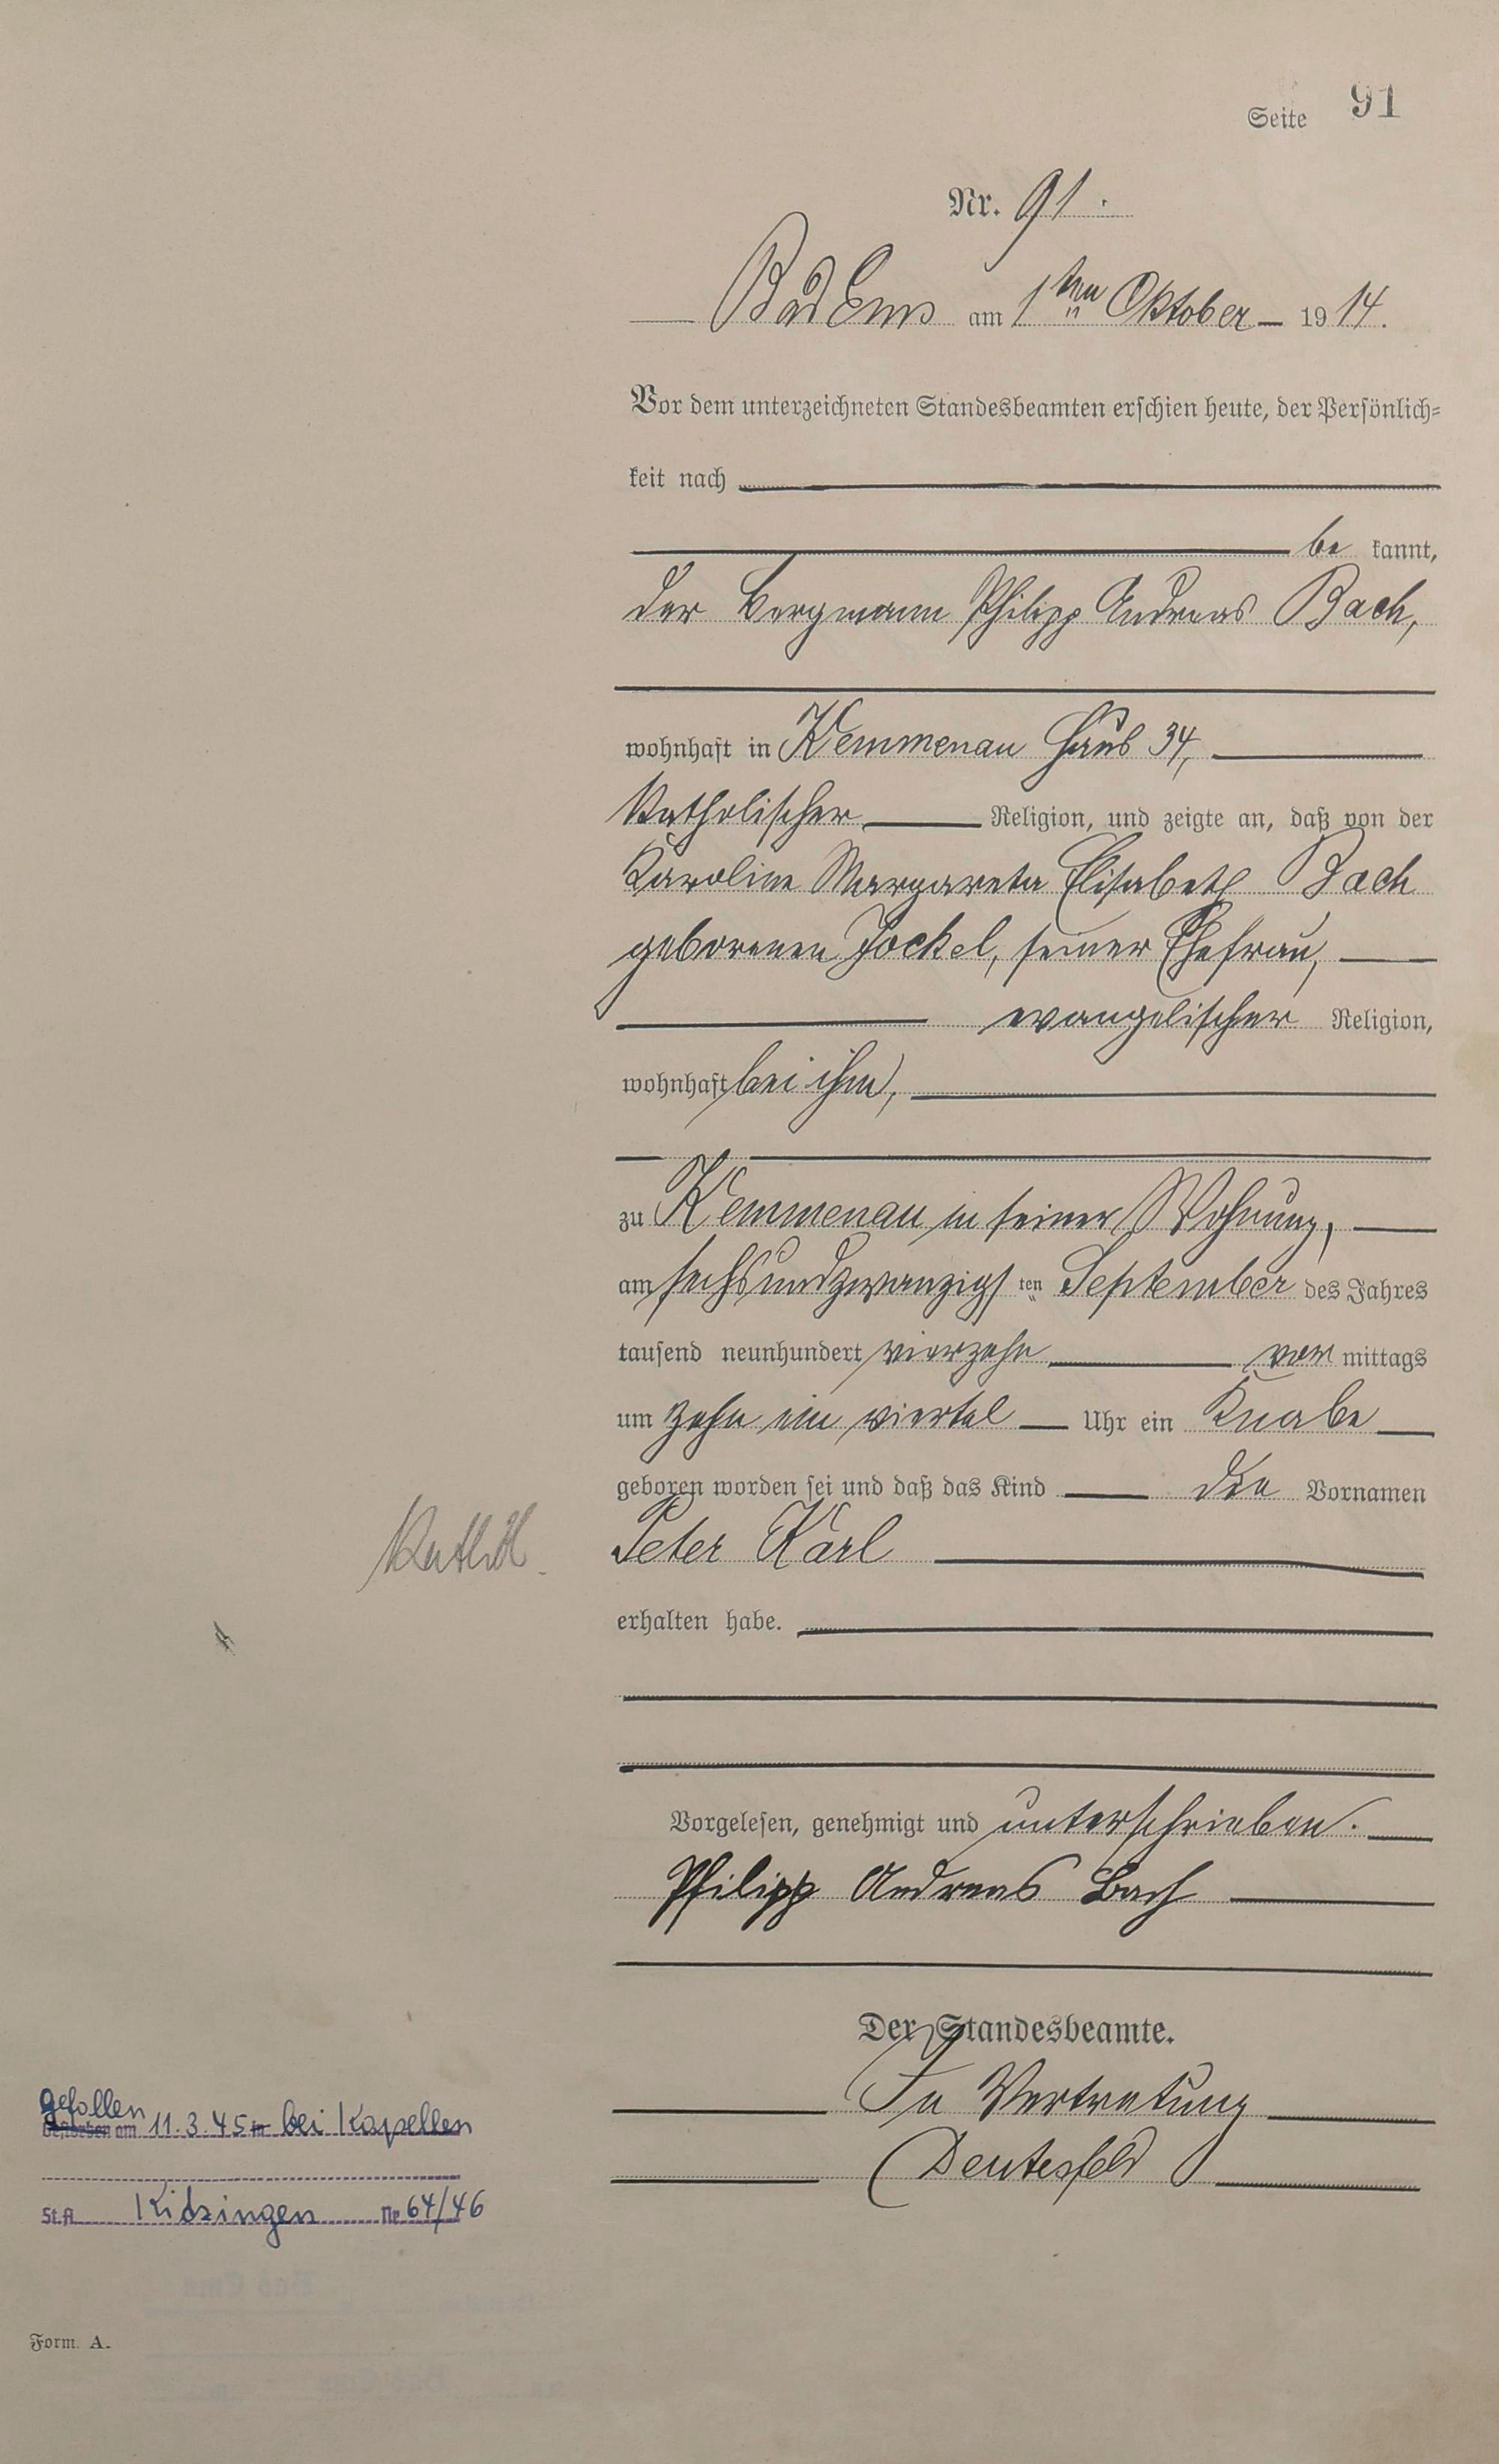 Seite 91
Nr. 91.
Bad Ems am 1ten Oktober 1914.
Vor dem unterzeichneten Standesbeamten erschien heute, der Persönlich-
keit nach
be kannt,
der Bergmann Philipp Andreas Bach,
wohnhaft in Kemmenau Haus 34,
katholischer Religion, und zeigte an, daß von der
Karoline Margareta Elisabeth Bach
geborenen Jockel, seiner Ehefrau,
evangelischer Religion,
wohnhaft bei ihm,
zu Kemmenau in seiner Wohnung,
am sechsundzwanzigsten September des Jahres
tausend neunhundert vierzehn vor mittags
um zehn ein viertel Uhr ein Knabe
geboren worden sei und daß das Kind die Vornamen
Peter Karl
erhalten habe.
Vorgelesen, genehmigt und unterschrieben.
Philipp Andreas Bach
Der Standesbeamte.
In Vertretung
Deutesfeld
gefallen
Gestorben am 11.3.45 in bei Kapellen
St.A. Kidzingen Nr. 64/46
Form. A.